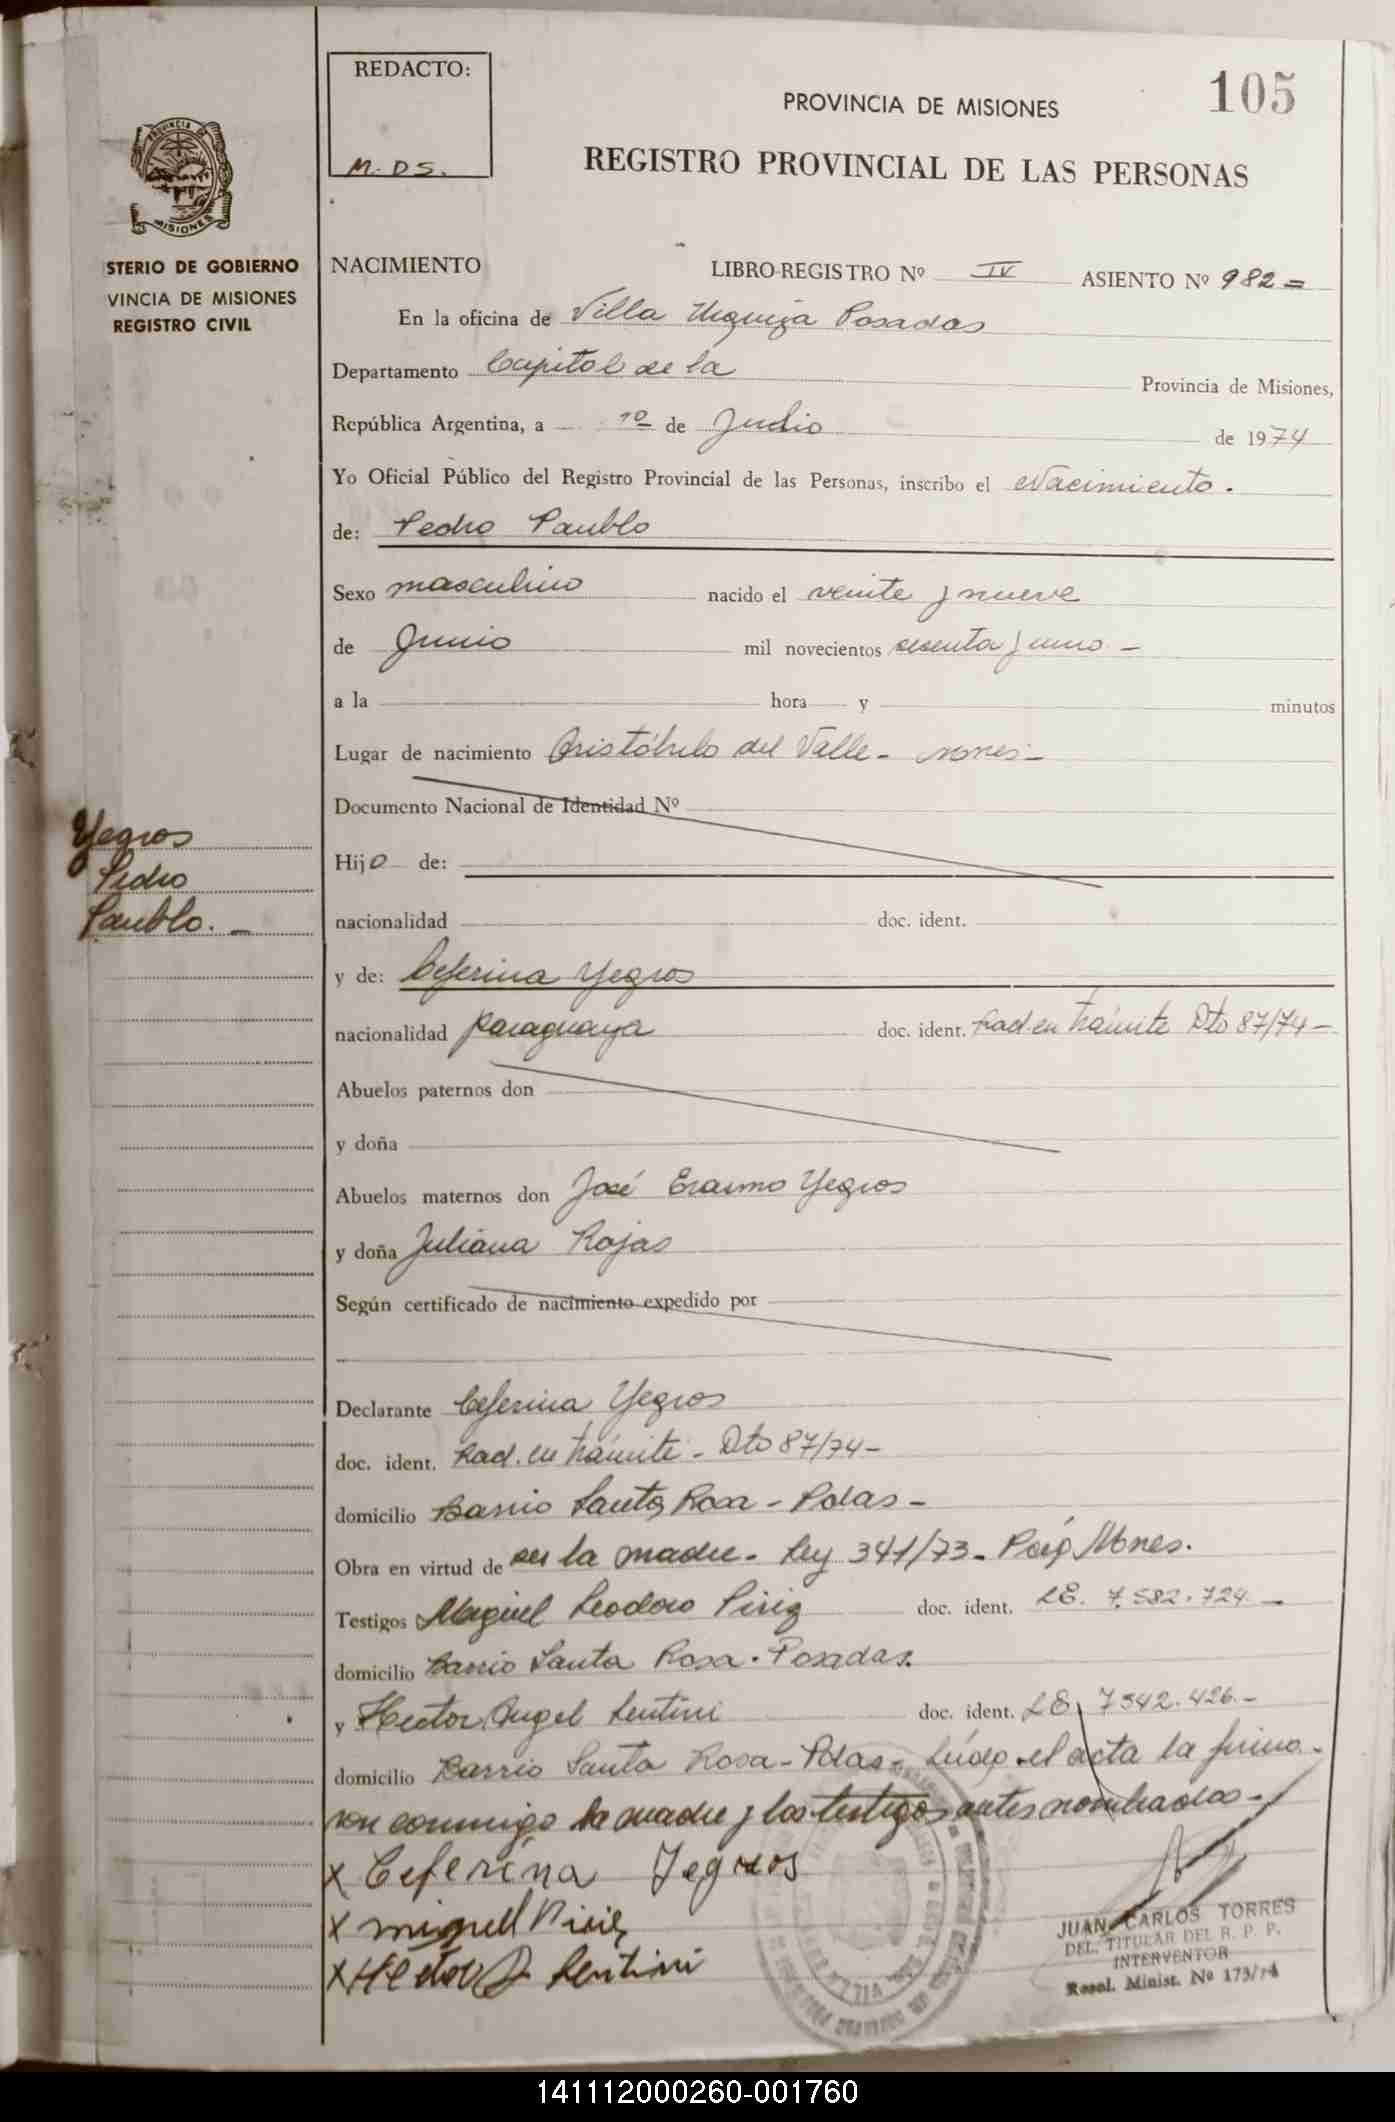 REDACTO:
M. DS.
105
PROVINCIA DE MISIONES
REGISTRO PROVINCIAL DE LAS PERSONAS
PROVINCIA DE
MISIONES
STERIO DE GOBIERNO
VINCIA DE MISIONES
REGISTRO CIVIL
NACIMIENTO LIBRO-REGISTRO Nº IV ASIENTO Nº 982=
En la oficina de Villa Urquiza Posadas
Departamento Capital de la Provincia de Misiones,
República Argentina, a 1º de Julio de 1974
Yo Oficial Público del Registro Provincial de las Personas, inscribo el Nacimiento.
de: Pedro Paublo
Sexo masculino nacido el veinte y nueve
de Junio mil novecientos sesenta y uno -
a la hora y minutos
Lugar de nacimiento Aristóbulo del Valle - Mnes -
Documento Nacional de Identidad Nº
Yegros
Pedro
Paublo. -
Hijo de:
nacionalidad doc. ident.
y de: Ceferina Yegros
nacionalidad paraguaya doc. ident. Rad en trámite Dto 87/74 -
Abuelos paternos don
y doña
Abuelos maternos don José Erasmo Yegros
y doña Juliana Rojas
Según certificado de nacimiento expedido por
Declarante Ceferina Yegros
doc. ident. Rad. en trámite - Dto 87/74 -
domicilio Barrio Santa Rosa - Pdas -
Obra en virtud de ser la madre - Ley 341/73 - Mnes.
Testigos Miguel Leodoro Piriz doc. ident. LE. 7.582.724. -
domicilio Barrio Santa Rosa. Posadas.
y Hector Angel Lentini doc. ident. LE. 7542.426. -
domicilio Barrio Santa Rosa - Pdas - Leída el acta la firma
ron conmigo la madre y los testigos antes nombrados -
x Ceferina Yegros
x miguel Piriz
x Hector A Lentini
JUAN CARLOS TORRES
DEL. TITULAR DEL R. P. P.
INTERVENTOR
Resol. Minist. Nº 173/74
141112000260-001760